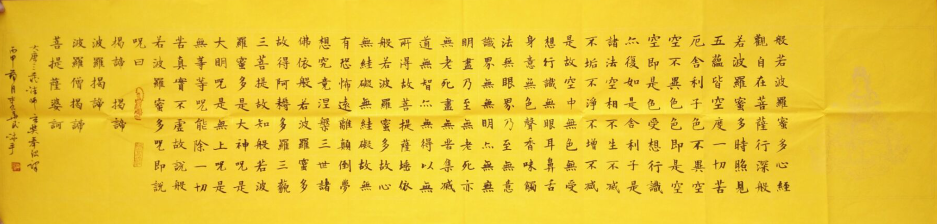 般若波羅蜜多心經
觀自在菩薩行深般
若波羅蜜多時照見
五蘊皆空度一切苦
厄舍利子色不異空
空不異色色即是空
空即是色受想行識
亦復如是舍利子是
諸法空相不生不滅
不垢不淨不增不減
是故空中無色無受
想行識無眼耳鼻舌
身意無色聲香味觸
法無眼界乃至無意
識界無無明亦無無
明盡乃至無老死亦
無老死盡無苦集滅
道無智亦無得以無
所得故菩提薩埵依
般若波羅蜜多故心
無罣礙無罣礙故無
有恐怖遠離顛倒夢
想究竟涅槃三世諸
佛依般若波羅蜜多
故得阿耨多羅三藐
三菩提故知般若波
羅蜜多是大神呪是
大明呪是無上呪是
無等等呪能除一切
苦真實不虛故說般
若波羅蜜多呪即說
呪曰
揭諦 揭諦
波羅揭諦
波羅僧揭諦
菩提薩婆訶
大唐三藏法師玄奘奉詔譯
丙申